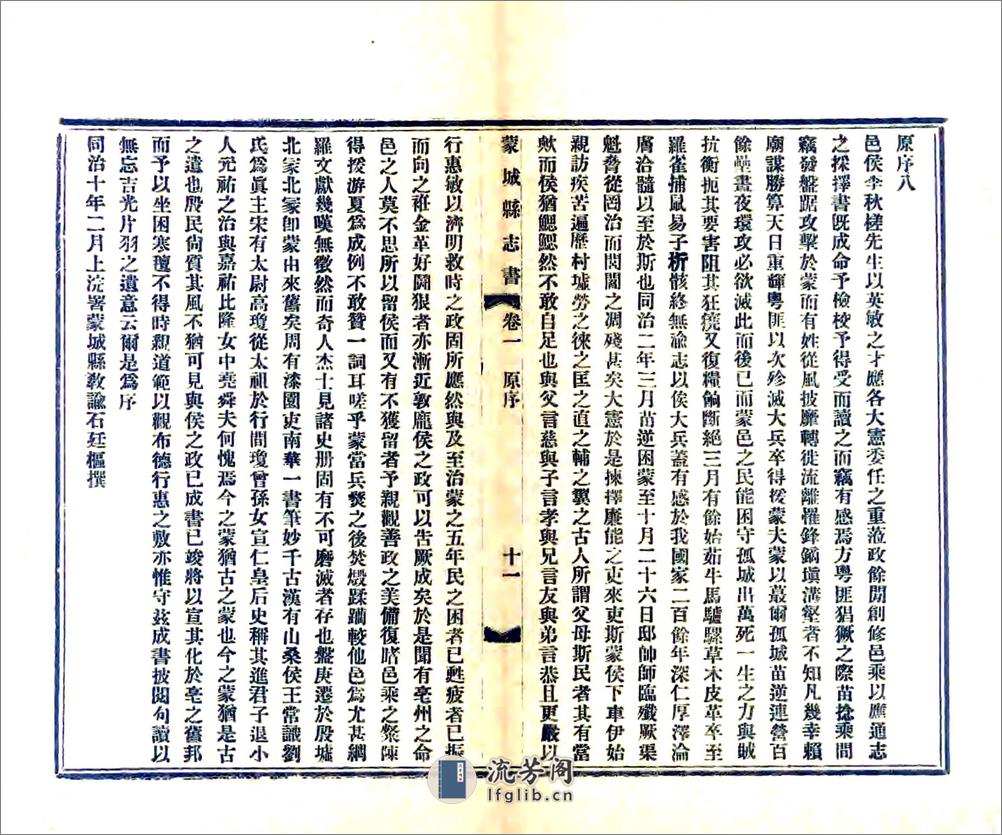 原序八
邑侯李秋槎先生以英敏之才應各大憲委任之重蒞政餘閒創修邑乘以應通志
之採擇書既成命予檢校予得受而讀之而竊有感焉方粵匪猖獗之際苗捻乘間
竊發盤踞攻擊於蒙而有姓從風披靡轉徙流離罹鋒鏑塡溝壑者不知凡幾幸賴
廟謀勝算天日重輝粵匪以次殄滅大兵卒得援蒙夫蒙以蕞爾孤城苗逆連營百
餘壘晝夜環攻必欲滅此而後已而蒙邑之民能困守孤城出萬死一生之力與賊
抗衡扼其要害阻其狂又復糧餉斷絕三月有餘始茹牛馬驢騾草木皮革卒至
羅雀捕鼠易子析骸終無渝志以俟大兵蓋有感於我國家二百餘年深仁厚澤淪
膚洽髓以至於斯也同治二年三月苗逆困蒙至十月二十六日邸帥師臨殲厥渠
魁脅從罔治而閭閻之凋殘甚矣大憲於是揀擇廉能之吏來吏斯蒙侯下車伊始
親訪疾苦遍歷村墟勞之徠之匡之直之輔之翼之古人所謂父母斯民者其有當
歟而侯猶鰓鰓然不敢自足也與父言慈與子言孝與兄言友與弟言恭且更嚴以
蒙城縣志書 卷一 原序 十一
行惠敏以濟明救時之政固所應然與及至治蒙之五年民之困者已甦疲者已振
而向之袵金革好鬬狠者亦漸近敦龐侯之政可以告厥成矣於是聞有亳州之命
邑之人莫不思所以留侯而又有不獲留者予親觀善政之美備復睹邑乘之粲陳
得援游夏爲成例不敢贊一詞耳嗟乎蒙當兵燹之後焚燬蹂躪較他邑爲尤甚網
羅文獻幾嘆無徵然而奇人杰士見諸史册固有不可磨滅者存也盤庚遷於殷墟
北冢北冢卽蒙由來舊矣周有漆園吏南華一書筆妙千古漢有山桑侯王常識劉
氏爲眞主宋有太尉高瓊從太祖於行間瓊曾孫女宣仁皇后史稱其進君子退小
人元祐之治與嘉祐比隆女中堯舜夫何愧焉今之蒙猶古之蒙也今之蒙猶是古
之遺也殷民尙質其風不猶可見與侯之政已成書已竣將以宣其化於亳之舊邦
而予以坐困寒氊不得時親道範以觀布德行惠之敷亦惟守茲成書披閱句讀以
無忘吉光片羽之遺意云爾是爲序
同治十年二月上浣署蒙城縣敎諭石廷樞撰
流芳阁
lfglib.cn